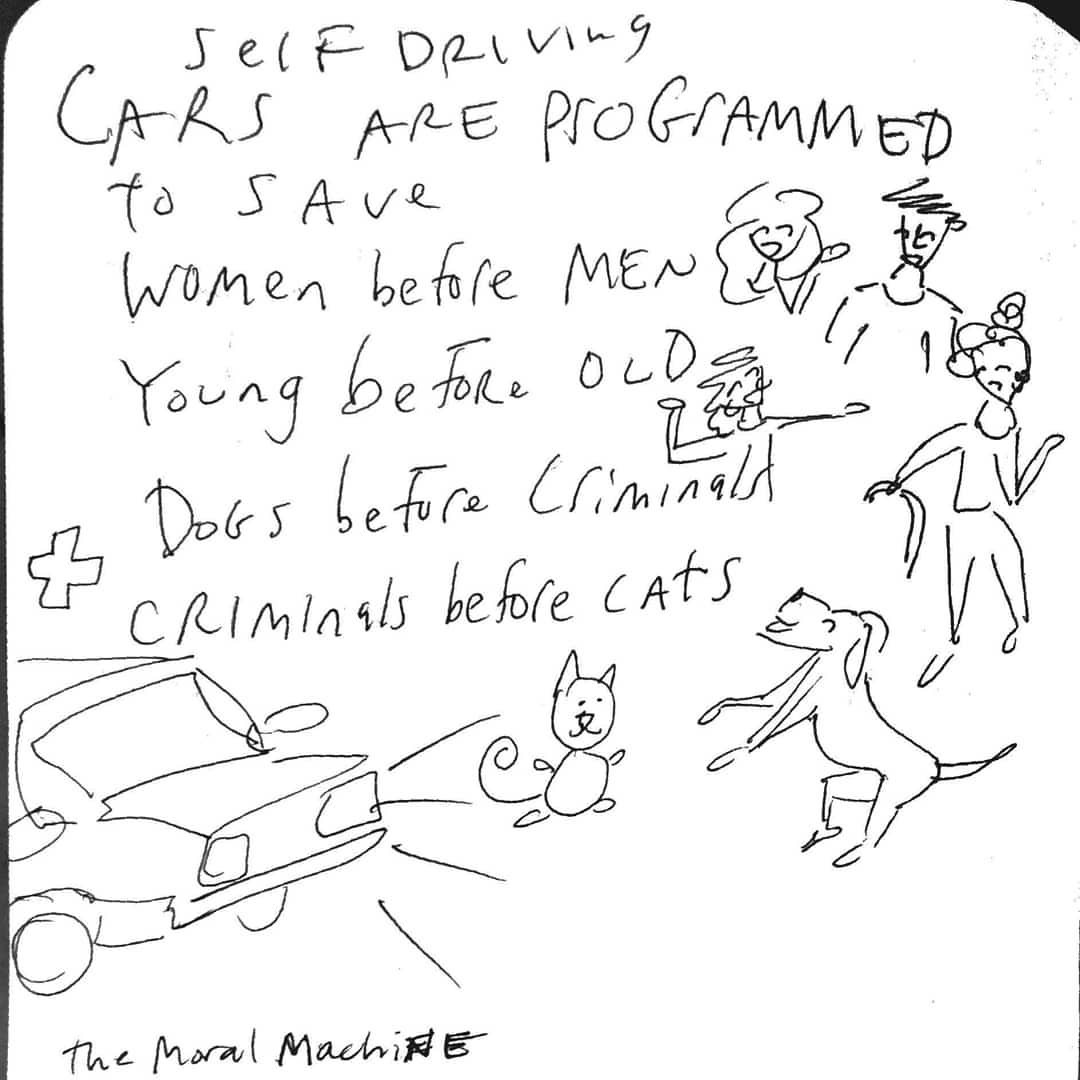 Self DRIVing
CARS ARE PROGRAMMED
to SAve
Women before MEN
Young before OLD
Dogs before Criminals
+ CRIMInals before CAts
the Moral MachiNE